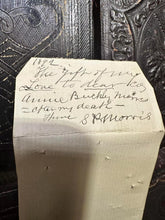 1892
The gift of my
Love to dear
Annie Buckley
after my death —
S P Morris